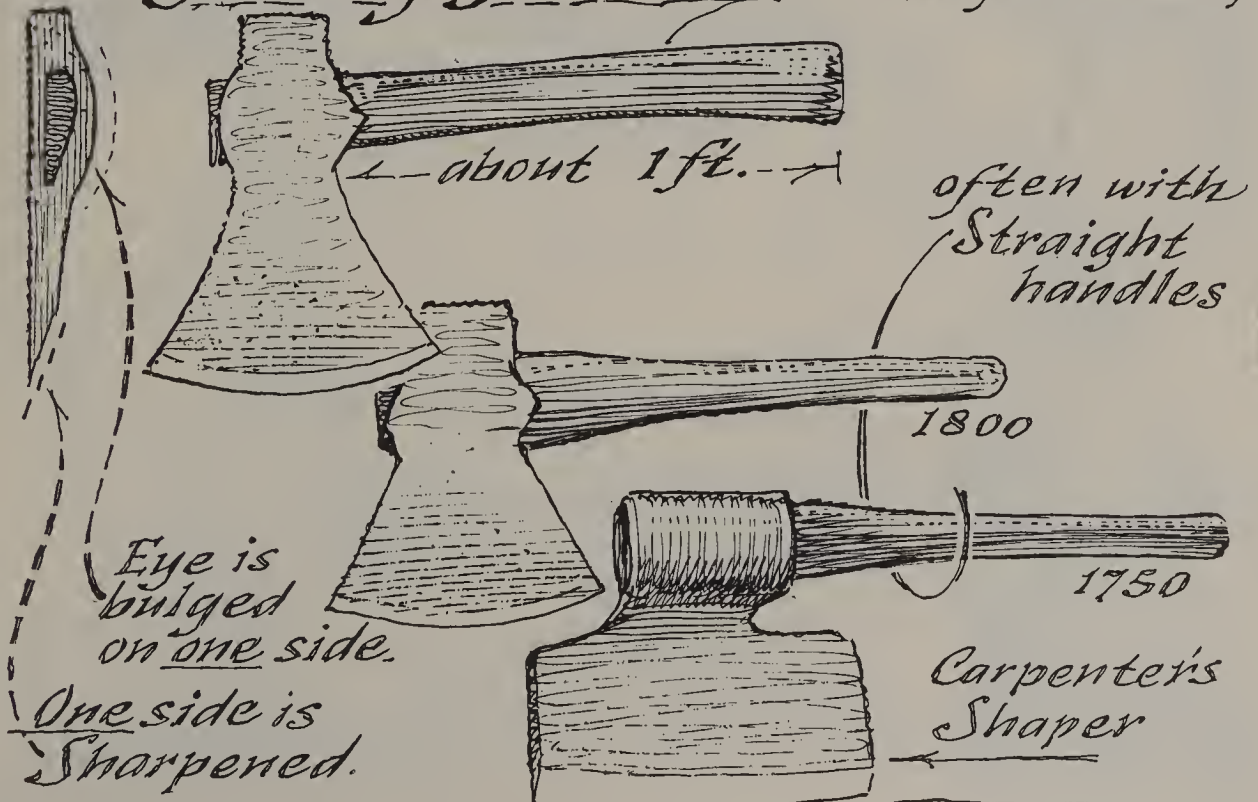 about 1ft.
often with
Straight
handles
1800
1750
Eye is
bulged
on one side.
One side is
Sharpened.
Carpenter's
Shaper